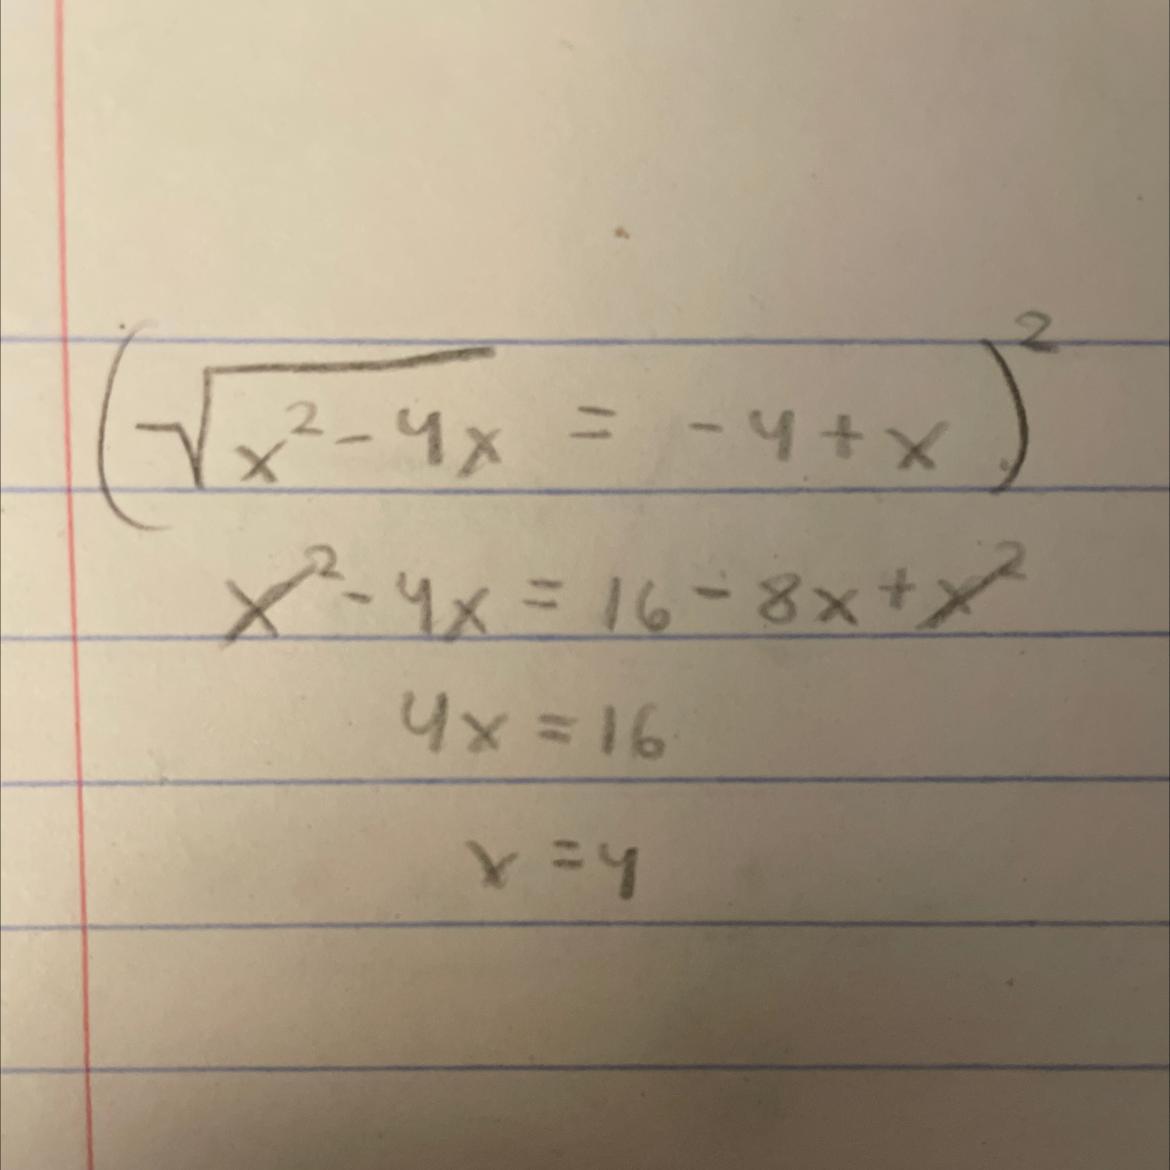 (√x² - 4x = -4 + x)²
x² - 4x = 16 - 8x + x²
4x = 16
x = 4